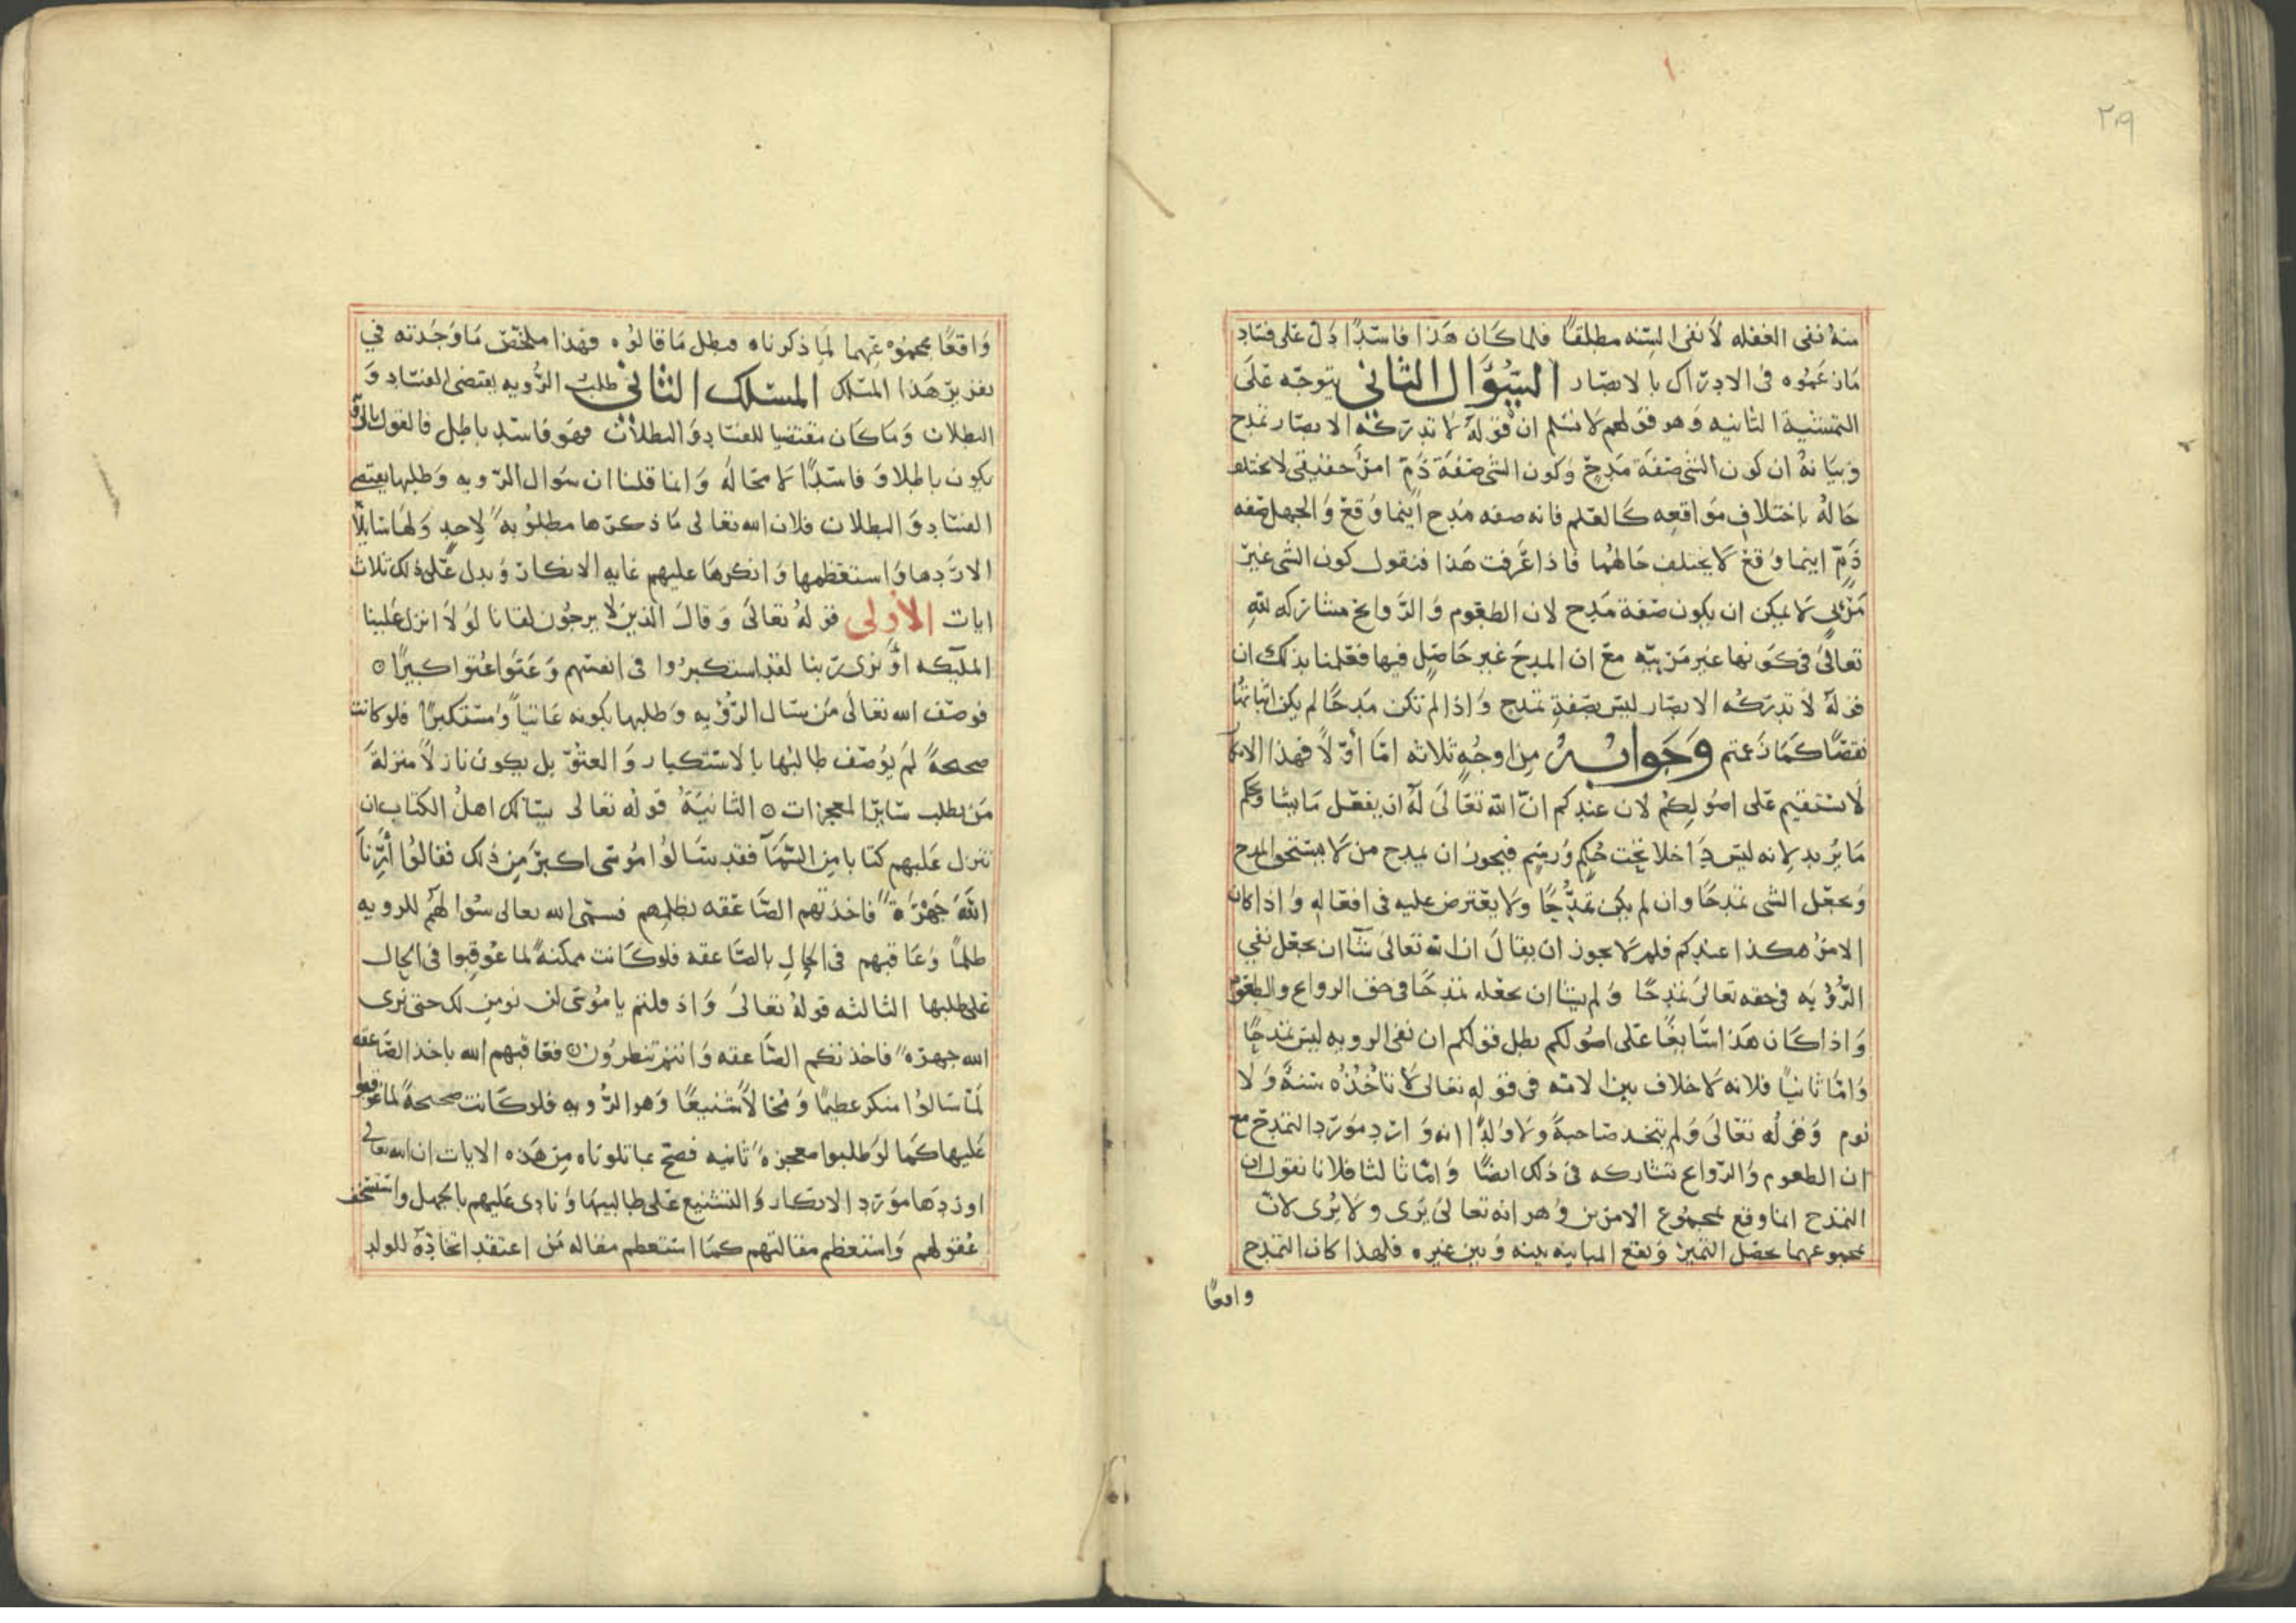 ٢٠٩
منهُ نفى الغفله لا نفى السِّنه مطلقًا فلما كان هَذا فاسّدًا دَل على فسَاد
مَا زعَموه فى الادرَاك بالابصَار السُّؤَال الثانى يتوجّه عَلَى
التمشية الثانيه وَهو قولهم لا نسَلم ان قولهُ لا تدركه الابصَار تمدح
وَبيَانهُ ان كون الشى صفَة مَدحٍ وَكون الشى صفَة ذَمّ امرٌ حقيقى لا يختلف
حَالهُ باختلاف مَواقعه كالعلم فانه صفه مَدح اينما وَقع وَالجهل صفه
ذَمٍّ اينما وَقع لا يختلف حَالهُما فاذا عَرفت هَذا فنقول كون الشى غيرَ
مَرْئىٍ لا يمكن ان يكون صفة مَدح لان الطعُوم وَالرَّوايح مشاركه لله
تعالىَ فى كونها غير مَرئيّه مع ان المدحَ غير حَاصِل فيها فعَلمنا بذلك ان
قولهُ لا تدركُه الابصَار ليسَ بصفةِ تمدح وَاذا لم تكن مَدحًا لم يكن اثباتهُا
نقصًا كما زعمتم وَجَوابُهُ من اوجُهٍ ثلاثه امَّا أوّلاً فهذا الايرَاد
لا يسْتقيم عَلى اصُولِكمُ لان عندكم انّ الله تعَالىَ لهُ ان يفعَل مَا يشا وَيحكم
مَا يُريد لانه ليسَ دَاخلا تحت حُكمٍ وَرسْمٍ فيجوز ان يمدح من لا يستحق المدح
وَيجعَل الشى تمدحًا وان لم يكن تمدُّحًا وَلا يعْترض عليه فى افعَاله وَاذا كان
الامرُ هكذا عندكم فلم لا يجوز ان يقالَ ان الله تعَالىَ شآ ان يجعَل نفى
الرُّؤيَه فى حقه تعالىَ تمدحًا وَلم يشا ان يجعَله تمدحًا فى حق الروايح والطعُوم
وَاذا كان هَذا سَايغًا عَلى اصُولكم بطل قولكم ان نفى الرويه ليسَ تمدحًا
وَامَّا ثانيًا فلانه لا خلاف بين الامّه فى قوله تعَالى لا تأخُذُه سِنةٌ وَلا
نَوم وَقولُه تعَالىَ وَلم يتخذ صَاحبةً وَلا وَلدًا انه وَارد مَورَد التمدّح مع
ان الطعوم وَالرّوايح تشاركه فى ذلك ايضًا وَامَّا ثالثا فلانا نقول ان
التمدح انما وقع بمجموع الامرين وَهو انه تعالى يَرى وَلا يُرى لانّ
بمجموعهما يحصل التميز وَيقع المباينه بينه وَبين غيره فلهذا كان التمدح
واقعًا
وَاقعًا بمجموْعهما لمِا ذكرناه فبطل مَا قالوُه فهَذا ملخّصُ مَا وَجَدته في
تقرير هَذا المسَلك المسَلك الثانى طلبُ الرُّويه يقتضى الفسَاد وَ
البطلان وَمَا كان مقتضيا للفسَاد وَالبطلان فهوَ فَاسَد باطل فالقول بالرؤيه
يكون باطلا وَفاسَدًا لا محَالهُ وَانما قلنا ان سُوال الرّويه وَطلبها يقتضى
الفسَاد وَالبطلان فلان الله تعَالى مَا ذكرَها مطلوُبه لاحدٍ وَلهَا سَايلاً
الا ردّها وَاستعَظمها وَانكرهَا عليهم غايه الانكار وَيدل عَلى ذلك ثلاث
ايات الأولى قولهُ تعَالىَ وَقالَ الذين لا يرجوُن لقانا لوَلا انزل عَلينا
الملَيكه أوْ نرى ربنا لقد استكبرُوا فى انفسهم وَعَتَوا عُتوا كبيرًا ۞
فوصَف الله تعَالىَ مَن سَال الرُّؤيه وَطلبها بكونه عَاتيًا وَمُسْتكبرًا فلو كانت
صَحيحةً لمَ يوُصَف طالبُها بالاسْتكبار وَالعتُوّ بل يكون نازلاً منزلة
مَن يطلب سَاير المعجزات ۞ الثانيَةُ قولُه تعَالى يسَالك اهلُ الكتاب ان
تنزل عَليهم كتابا مِن السَّمَآ فقد سَالوُا مُوسَى اكبرَ مِن ذلك فقالوُا أرِنَا
اللهَ جَهْرَةً فاخذتهم الصَّاعقه بظلمهم فسمّى الله تعالى سُوالهمُ للرويه
ظلمًا وَعَاقبهم فى الحالِ بالصّاعقه فلو كانت ممكنةً لما عُوقبوا فى الحال
عَلى طلبها الثالثه قولهُ تعَالىَ وَاذ قلتم يا مُوسَى لن نومن لك حتى نرى
الله جهرَةً فاخذتكم الصَّاعقه وَانتم تنظروُن ۞ فعَاقبهم الله باخذ الصَّاعقه
لمَّا سَالوُا منكرًا عظيمًا وَمُحَالاً شنيعًا وَهو الرُّويه فلو كانت صَحيحةً لما عوقبوا
عَليها كما لوَ طلبوا معجزةً ثانيه فصَح بما تلوناه مِن هَذه الايات ان الله تعالى
اورَدهَا مَورَد الانكار وَالتشنيع عَلى طالبيهَا وَنادى عَليهم بالجهل واستخف
عُقولهم وَاستعَظم مقالتهم كما اسْتعظم مقاله مَن اعتقد اتخاذهُ للولد